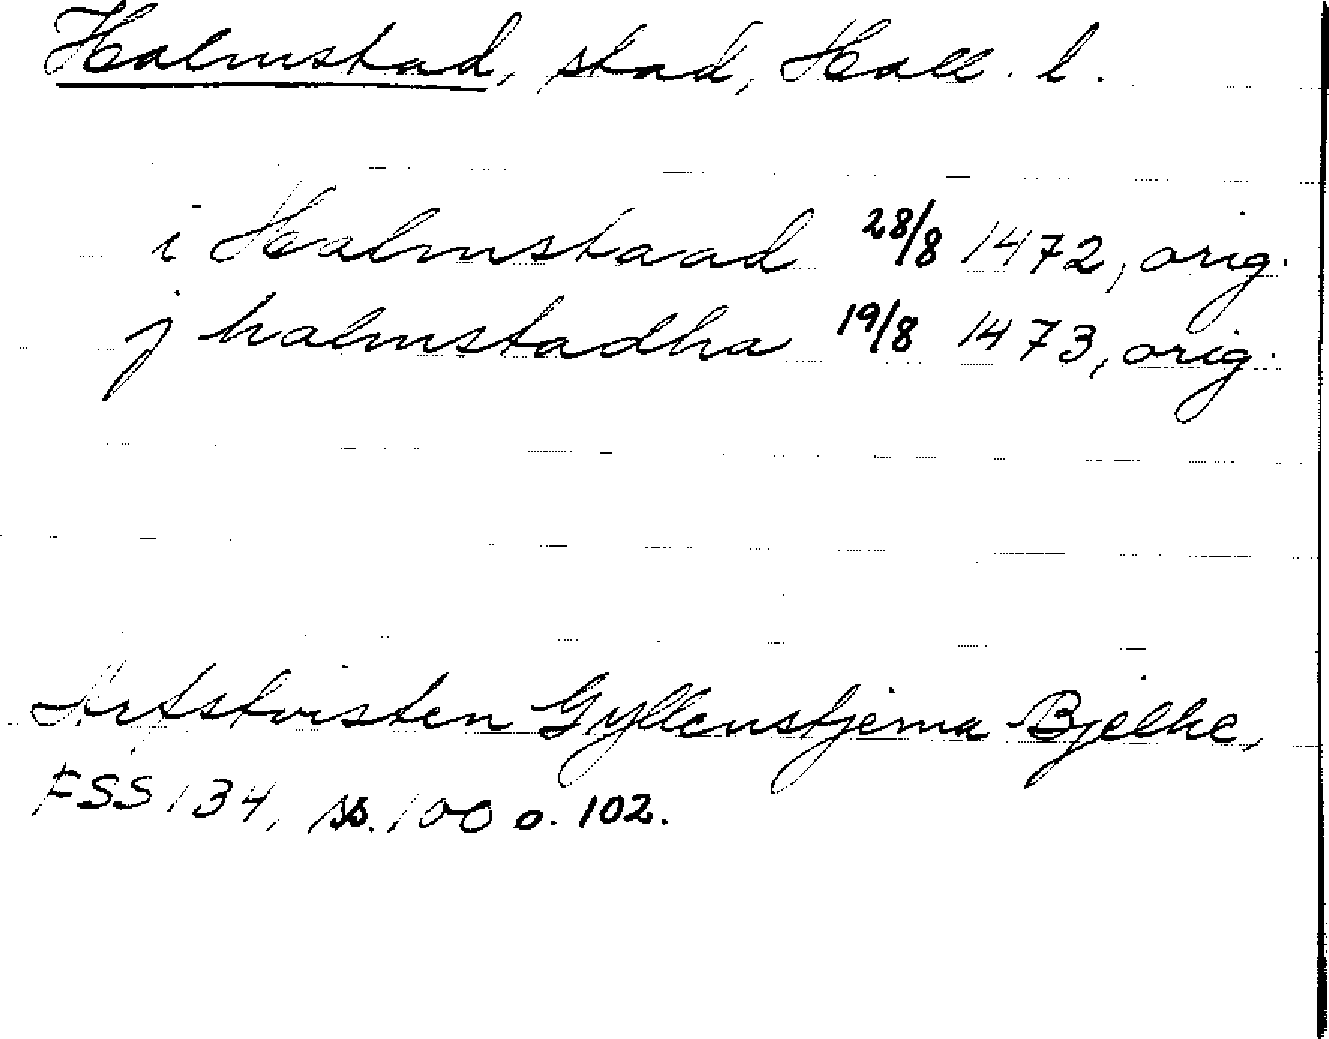 Halmstad, stad, Hall. l.
i Halmstaad 28/8 1472, orig.
j halmstadha 19/8 1473, orig.
Arfstvisten Gyllenstjerna-Bjelke,
FSS 134, ss. 100 o. 102.